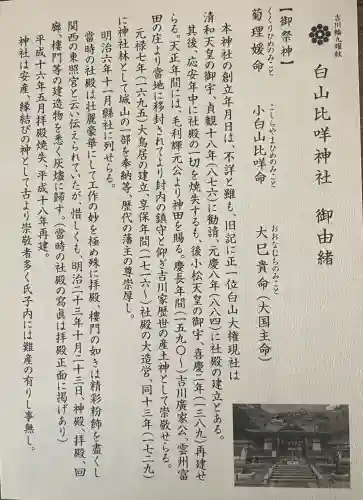 吉川輪九曜紋
白山比咩神社　御由緒
【御祭神】
くくりひめのみこと　こしらやまひめのみこと　おおなむちのみこと
菊理媛命　小白山比咩命　大巳貴命（大国主命）
本神社の創立年月日は、不詳と雖も、旧記に正一位白山大権現社は
清和天皇の御宇、貞観十八年（八七六）に勧請、元慶八年（八八四）に社殿の建立とある。
其後、応安年中に社殿の一切を焼失するも、後小松天皇の御宇、喜慶二年（一三八九）再建せ
らる。天正年間には、毛利輝元公より神田を賜る。慶長年間（一五九〇～）吉川廣家公、雲州富
田の庄より當地に移封されてより封内の鎮守と仰ぎ吉川家歴世の産土神として崇敬せらる。
元禄七年（一六九五）大鳥居の建立、享保年間（一七一六～）社殿の大造営、同十三年（一七二九）
に神社林として城山の一部を奉納等、歴代の藩主の尊崇厚し。
明治六年十一月縣社に列せらる。
當時の社殿は壮麗豪華にして工作の妙を極め殊に拝殿、樓門の如きは精彩粉飾を盡くし
関西の東照宮と云い伝えられていたが、惜しくも、明治二十三年十月二十三日、神殿、拝殿、回
廊、樓門等の建造物を悉く灰燼に歸す。（當時の社殿の寫眞は拝殿正面に掲げあり）
平成十六年五月拝殿焼失、平成十八年再建。
神社は安産、縁結びの神として古より崇敬者多く氏子内には難産の有りし事無し。